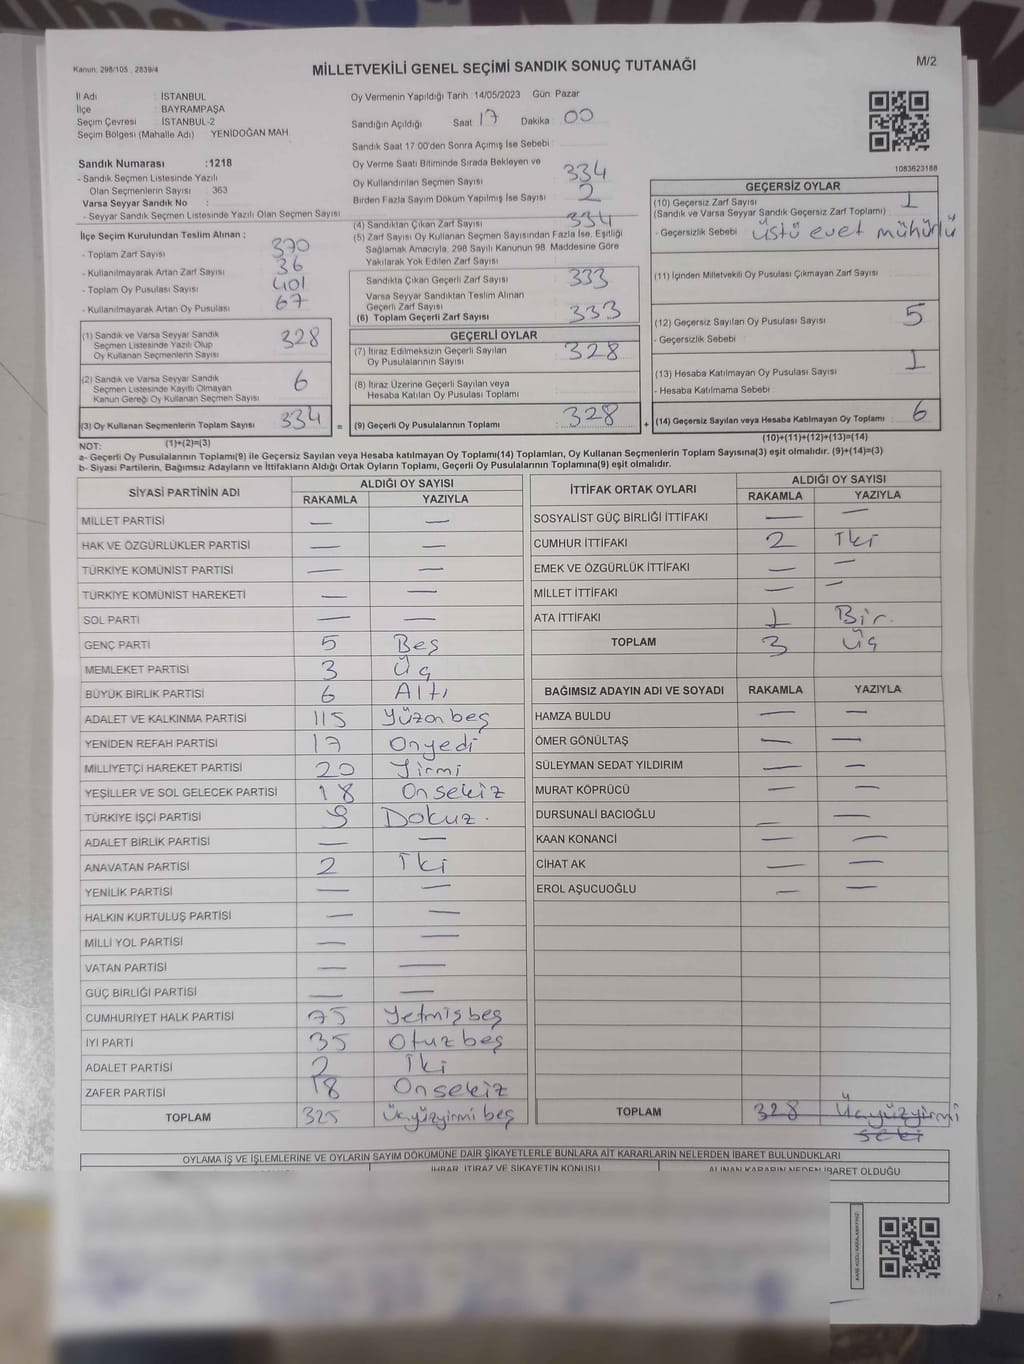 Kanun: 298/105 , 2839/4
MİLLETVEKİLİ GENEL SEÇİMİ SANDIK SONUÇ TUTANAĞI
M/2
İl Adı : İSTANBUL
İlçe : BAYRAMPAŞA
Seçim Çevresi : İSTANBUL-2
Seçim Bölgesi (Mahalle Adı) : YENİDOĞAN MAH
Sandık Numarası :1218
- Sandık Seçmen Listesinde Yazılı
Olan Seçmenlerin Sayısı : 363
Varsa Seyyar Sandık No :
- Seyyar Sandık Seçmen Listesinde Yazılı Olan Seçmen Sayısı
İlçe Seçim Kurulundan Teslim Alınan ;
- Toplam Zarf Sayısı : 370
- Kullanılmayarak Artan Zarf Sayısı : 36
- Toplam Oy Pusulası Sayısı : 401
- Kullanılmayarak Artan Oy Pusulası : 67
(1) Sandık ve Varsa Seyyar Sandık
Seçmen Listesinde Yazılı Olup
Oy Kullanan Seçmenlerin Sayısı : 328
(2) Sandık ve Varsa Seyyar Sandık
Seçmen Listesinde Kayıtlı Olmayan
Kanun Gereği Oy Kullanan Seçmen Sayısı : 6
(3) Oy Kullanan Seçmenlerin Toplam Sayısı : 334
Oy Vermenin Yapıldığı Tarih :14/05/2023 Gün: Pazar
Sandığın Açıldığı : Saat : 17 Dakika : 00
Sandık Saat 17:00'den Sonra Açılmış İse Sebebi :
Oy Verme Saati Bitiminde Sırada Bekleyen ve
Oy Kullandırılan Seçmen Sayısı : 334
Birden Fazla Sayım Döküm Yapılmış İse Sayısı : 2
(4) Sandıktan Çıkan Zarf Sayısı : 334
(5) Zarf Sayısı Oy Kullanan Seçmen Sayısından Fazla İse, Eşitliği
Sağlamak Amacıyla, 298 Sayılı Kanunun 98. Maddesine Göre
Yakılarak Yok Edilen Zarf Sayısı :
Sandıkta Çıkan Geçerli Zarf Sayısı : 333
Varsa Seyyar Sandıktan Teslim Alınan
Geçerli Zarf Sayısı :
(6) Toplam Geçerli Zarf Sayısı : 333
GEÇERLİ OYLAR
(7) İtiraz Edilmeksizin Geçerli Sayılan
Oy Pusulalarının Sayısı : 328
(8) İtiraz Üzerine Geçerli Sayılan veya
Hesaba Katılan Oy Pusulası Toplamı :
= (9) Geçerli Oy Pusulalarının Toplamı : 328 +
1083623188
GEÇERSİZ OYLAR
(10) Geçersiz Zarf Sayısı
(Sandık ve Varsa Seyyar Sandık Geçersiz Zarf Toplamı) : 1
- Geçersizlik Sebebi : üstü evet mühürlü
(11) İçinden Milletvekili Oy Pusulası Çıkmayan Zarf Sayısı :
(12) Geçersiz Sayılan Oy Pusulası Sayısı : 5
- Geçersizlik Sebebi :
(13) Hesaba Katılmayan Oy Pusulası Sayısı : 1
- Hesaba Katılmama Sebebi :
(14) Geçersiz Sayılan veya Hesaba Katılmayan Oy Toplamı : 6
NOT: (1)+(2)=(3) (10)+(11)+(12)+(13)=(14)
a- Geçerli Oy Pusulasının Toplamı(9) ile Geçersiz Sayılan veya Hesaba katılmayan Oy Toplamı(14) Toplamları, Oy Kullanan Seçmenlerin Toplam Sayısına(3) eşit olmalıdır. (9)+(14)=(3)
b- Siyasi Partilerin, Bağımsız Adayların ve İttifakların Aldığı Ortak Oyların Toplamı, Geçerli Oy Pusulalarının Toplamına(9) eşit olmalıdır.
SİYASİ PARTİNİN ADI ALDIĞI OY SAYISI
RAKAMLA YAZIYLA
MİLLET PARTİSİ — —
HAK VE ÖZGÜRLÜKLER PARTİSİ — —
TÜRKİYE KOMÜNİST PARTİSİ — —
TÜRKİYE KOMÜNİST HAREKETİ — —
SOL PARTİ — —
GENÇ PARTİ 5 Beş
MEMLEKET PARTİSİ 3 Üç
BÜYÜK BİRLİK PARTİSİ 6 Altı
ADALET VE KALKINMA PARTİSİ 115 Yüzonbeş
YENİDEN REFAH PARTİSİ 17 Onyedi
MİLLİYETÇİ HAREKET PARTİSİ 20 Yirmi
YEŞİLLER VE SOL GELECEK PARTİSİ 18 Onsekiz
TÜRKİYE İŞÇİ PARTİSİ 9 Dokuz.
ADALET BİRLİK PARTİSİ — —
ANAVATAN PARTİSİ 2 İki
YENİLİK PARTİSİ — —
HALKIN KURTULUŞ PARTİSİ — —
MİLLİ YOL PARTİSİ — —
VATAN PARTİSİ — —
GÜÇ BİRLİĞİ PARTİSİ — —
CUMHURİYET HALK PARTİSİ 75 Yetmişbeş
İYİ PARTİ 35 Otuzbeş
ADALET PARTİSİ 2 İki
ZAFER PARTİSİ 18 Onsekiz
TOPLAM 325 Üçyüzyirmibeş
İTTİFAK ORTAK OYLARI ALDIĞI OY SAYISI
RAKAMLA YAZIYLA
SOSYALİST GÜÇ BİRLİĞİ İTTİFAKI — —
CUMHUR İTTİFAKI 2 İki
EMEK VE ÖZGÜRLÜK İTTİFAKI — —
MİLLET İTTİFAKI — —
ATA İTTİFAKI 1 Bir.
TOPLAM 3 Üç
BAĞIMSIZ ADAYIN ADI VE SOYADI RAKAMLA YAZIYLA
HAMZA BULDU — —
ÖMER GÖNÜLTAŞ — —
SÜLEYMAN SEDAT YILDIRIM — —
MURAT KÖPRÜCÜ — —
DURSUNALİ BACIOĞLU — —
KAAN KONANCİ — —
CİHAT AK — —
EROL AŞUCUOĞLU — —
TOPLAM 328 Üçyüzyirmi
OYLAMA İŞ VE İŞLEMLERİNE VE OYLARIN SAYIM DÖKÜMÜNE DAİR ŞİKAYETLERLE BUNLARA AİT KARARLARIN NELERDEN İBARET BULUNDUKLARI
İHBAR, İTİRAZ VE ŞİKAYETİN KONUSU ALINAN KARARIN NEDEN İBARET OLDUĞU